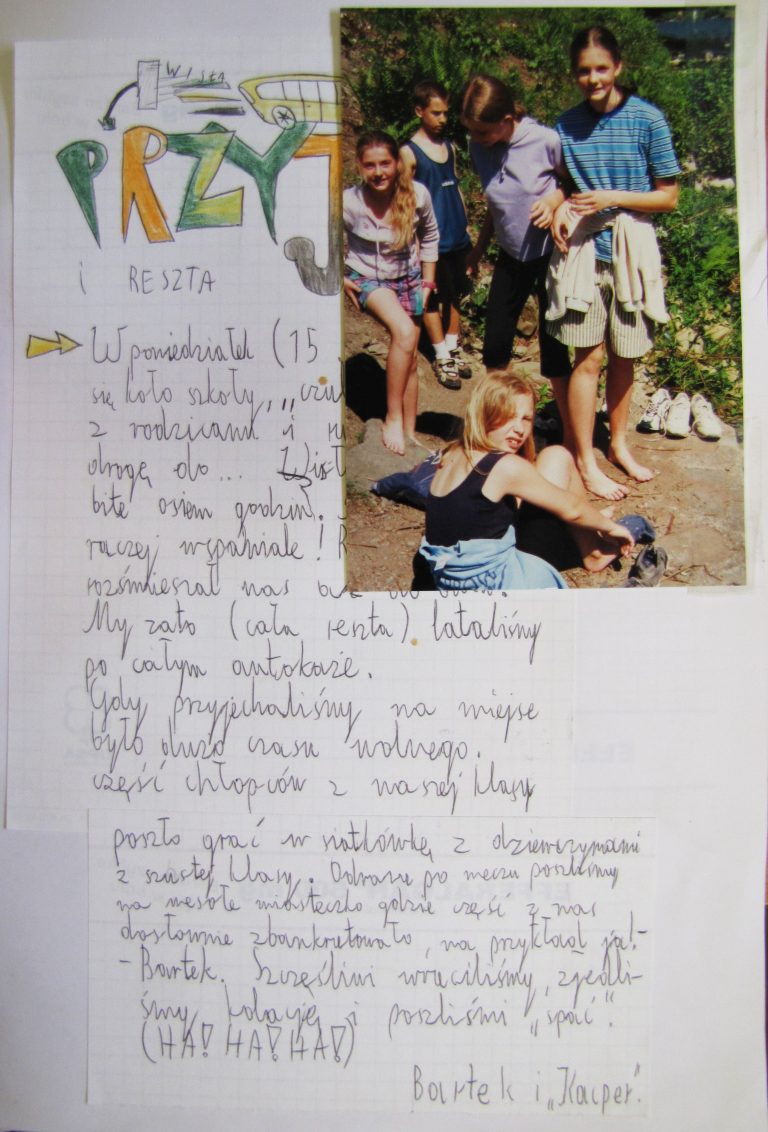 WISŁA
PRZYJ
i RESZTA
W poniedziałek (15
się koło szkoły, „czul
z rodzicami i ru
drogę do... Wisł
bite osiem godzin.
raczej wspaniale!
rozśmieszał nas
My zato (cała reszta) lataliśmy
po całym autokaże.
Gdy przyjechaliśmy na miejse
było dużo czasu wolnego.
część chłopców z naszej klasy
poszło grać w siatkówkę z dziewczynami
z szustej klasy. Odrazu po meczu poszliśmy
na wesołe miasteczko gdzie część z nas
dosłownie zbankrutowało, na przykład ja!-
- Bartek. Szczęśliwi wruciliśmy, zjedli-
śmy kolację i poszliśmi „spać".
(HA! HA! HA!)
Bartek i „Kacper".